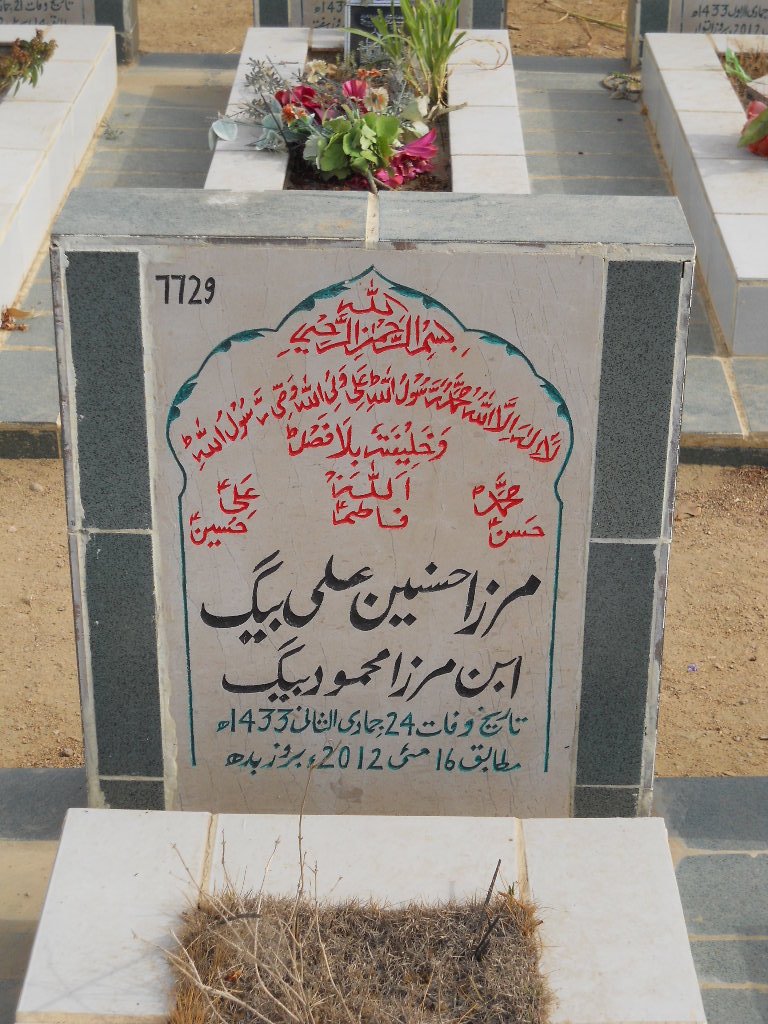 7729
بِسْمِ اللّٰهِ الرَّحْمٰنِ الرَّحِيْمِ
لَا اِلٰهَ اِلَّا اللّٰهُ مُحَمَّدٌ رَّسُوْلُ اللّٰهِ عَلِیٌّ وَلِیُّ اللّٰهِ وَصِیُّ رَسُوْلِ اللّٰهِ
وَخَلِيْفَتُهٗ بِلَا فَصْل
محمدؐ اللّٰہ علیؑ
حسنؑ فاطمہؑ حسینؑ
مرزا حسنین علی بیگ
ابن مرزا محمود بیگ
تاریخ وفات 24 جمادی الثانی 1433ھ
مطابق 16 مئی 2012ء بروز بدھ